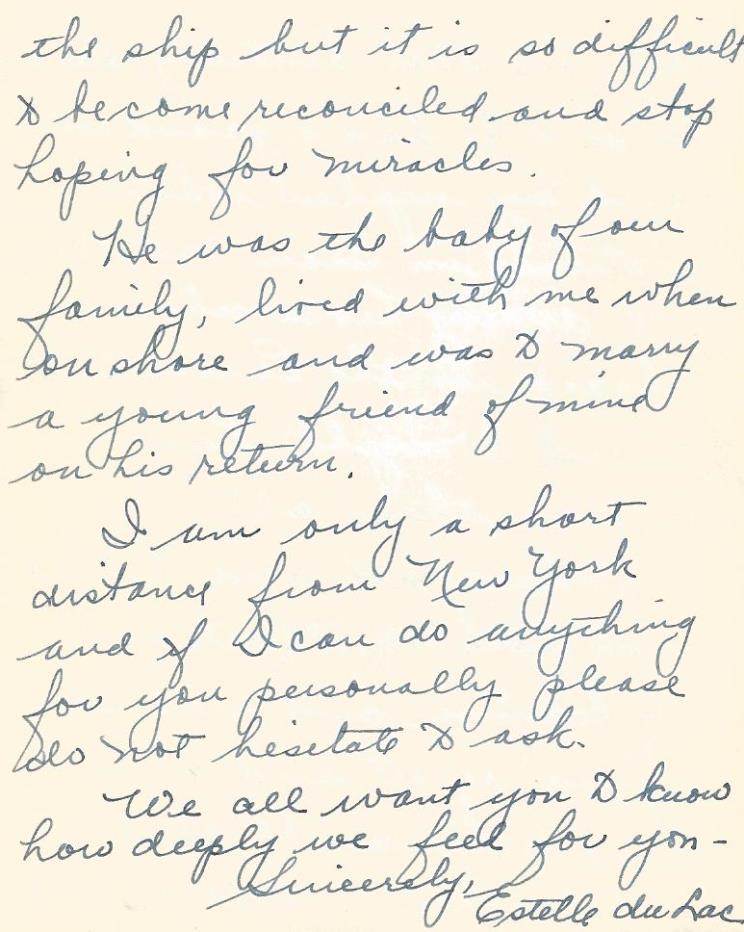 the ship but it is so difficult
to become reconciled and stop
hoping for miracles.
He was the baby of our
family, lived with me when
on shore and was to marry
a young friend of mine
on his return.
I am only a short
distance from New York
and if I can do anything
for you personally please
do not hesitate to ask.
We all want you to know
how deeply we feel for you-
Sincerely,
Estelle du Lac